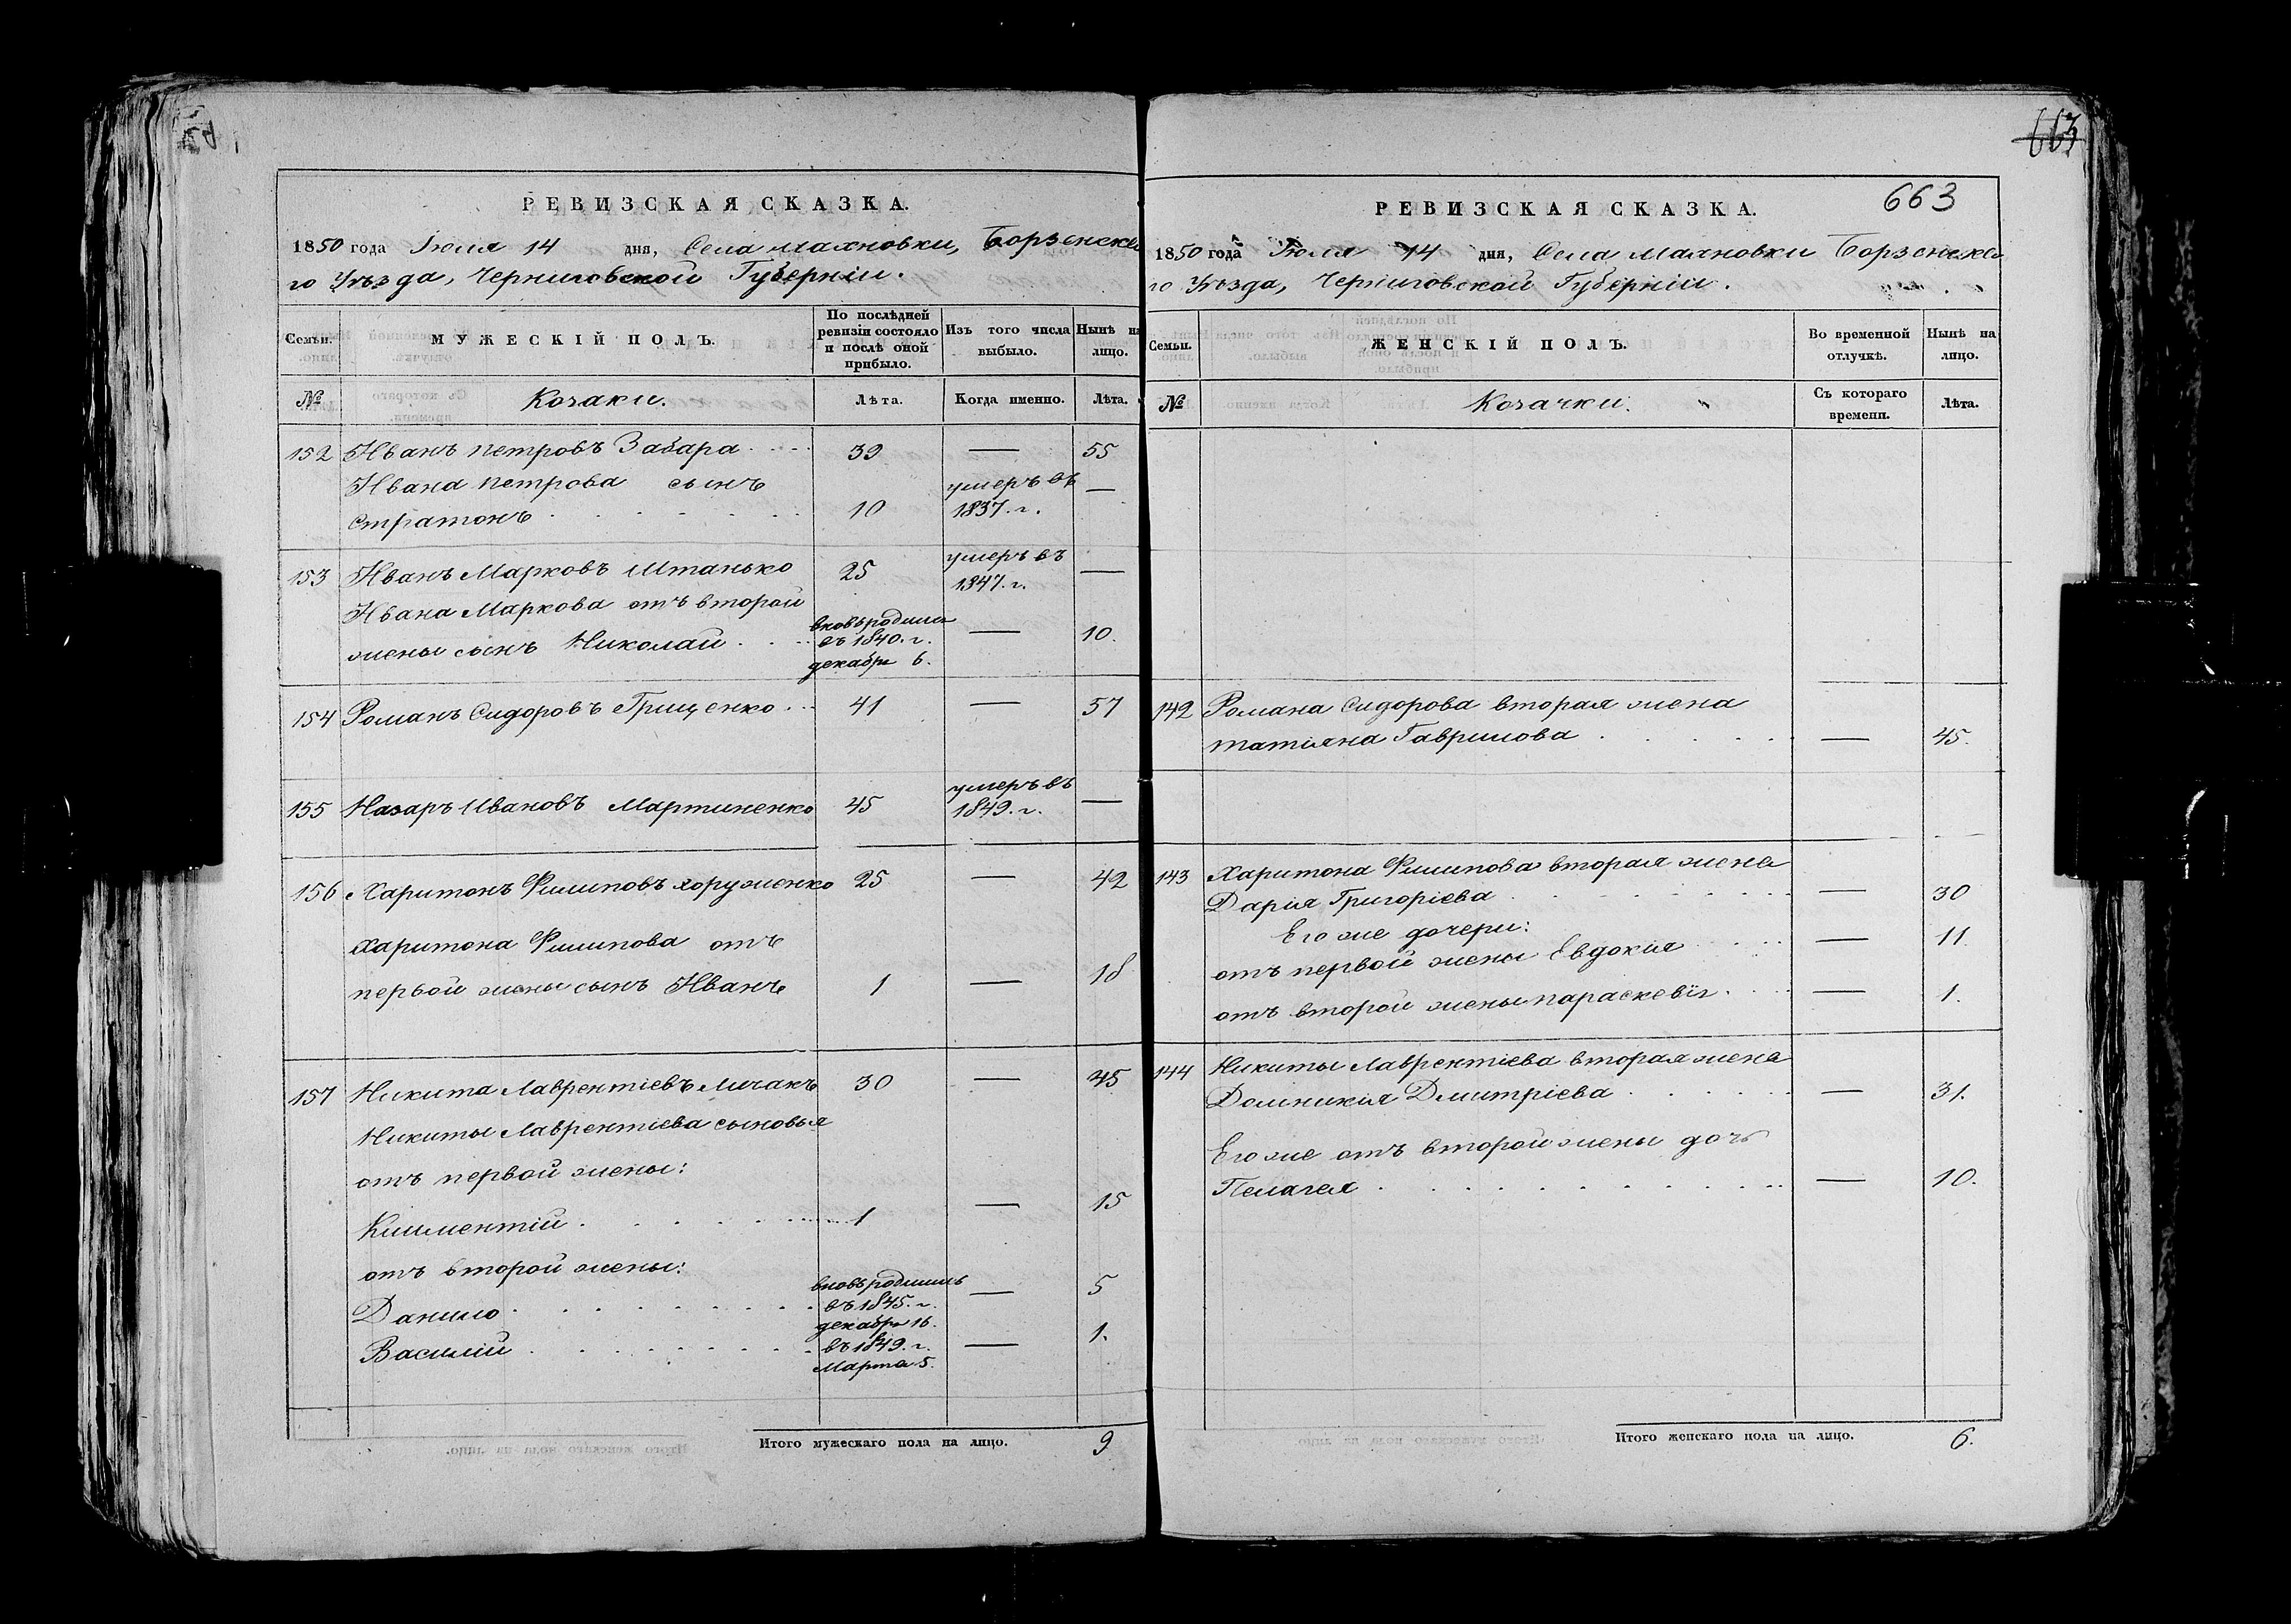 663
РЕВИЗСКАЯ СКАЗКА.
1850 года Іюля 14 дня, Села Махновки, Борзенска
го Уѣзда, Черниговской Губерніи.
Семьи.
МУЖЕСКІЙ ПОЛЪ.
По послѣдней ревизіи состояло и послѣ оной прибыло.
Изъ того числа выбыло.
Нынѣ на лицо.
№
Козаки.
Лѣта.
Когда именно.
Лѣта.
152 Иванъ Петровъ Забара 39 — 55
Ивана Петрова сынъ умеръ въ —
Стратонъ 10 1837. г.
153 Иванъ Марковъ Штанько 25 умеръ въ 1847. г. —
Ивана Маркова отъ второй
жены сынъ Николай вновь родился въ 1840. г. декабря 6. — 10.
154 Романъ Сидоровъ Грищенко 41 — 57
155 Назаръ Ивановъ Мартиненко 45 умеръ въ 1849. г. —
156 Харитонъ Филиповъ Хоруженко 25 — 42
Харитона Филипова отъ
первой жены сынъ Иванъ 1 — 18
157 Никита Лаврентіевъ Личакъ 30 — 45
Никиты Лаврентіева сыновья
отъ первой жены:
Климентій 1 — 15
отъ второй жены:
Данило вновь родились въ 1845. г. декабря 16. — 5
Василій въ 1849. г. Марта 5. — 1.
Итого мужескаго пола на лицо. 9
663
РЕВИЗСКАЯ СКАЗКА.
1850 года Іюля 14 дня, Села Махновки Борзенска
го Уѣзда, Черниговской Губерніи.
Семьи.
ЖЕНСКІЙ ПОЛЪ.
Во временной отлучкѣ.
Нынѣ на лицо.
№
Козачки.
Съ котораго времени.
Лѣта.
142 Романа Сидорова вторая жена
Татіяна Гаврилова — 45.
143 Харитона Филипова вторая жена
Дарія Григоріева — 30
Его же дочери:
отъ первой жены Евдокія — 11
отъ второй жены Параскевія — 1.
144 Никиты Лаврентіева вторая жена
Домникія Дмитріева — 31.
Его же отъ второй жены дочь
Пелагея — 10.
Итого женскаго пола на лицо. 6.